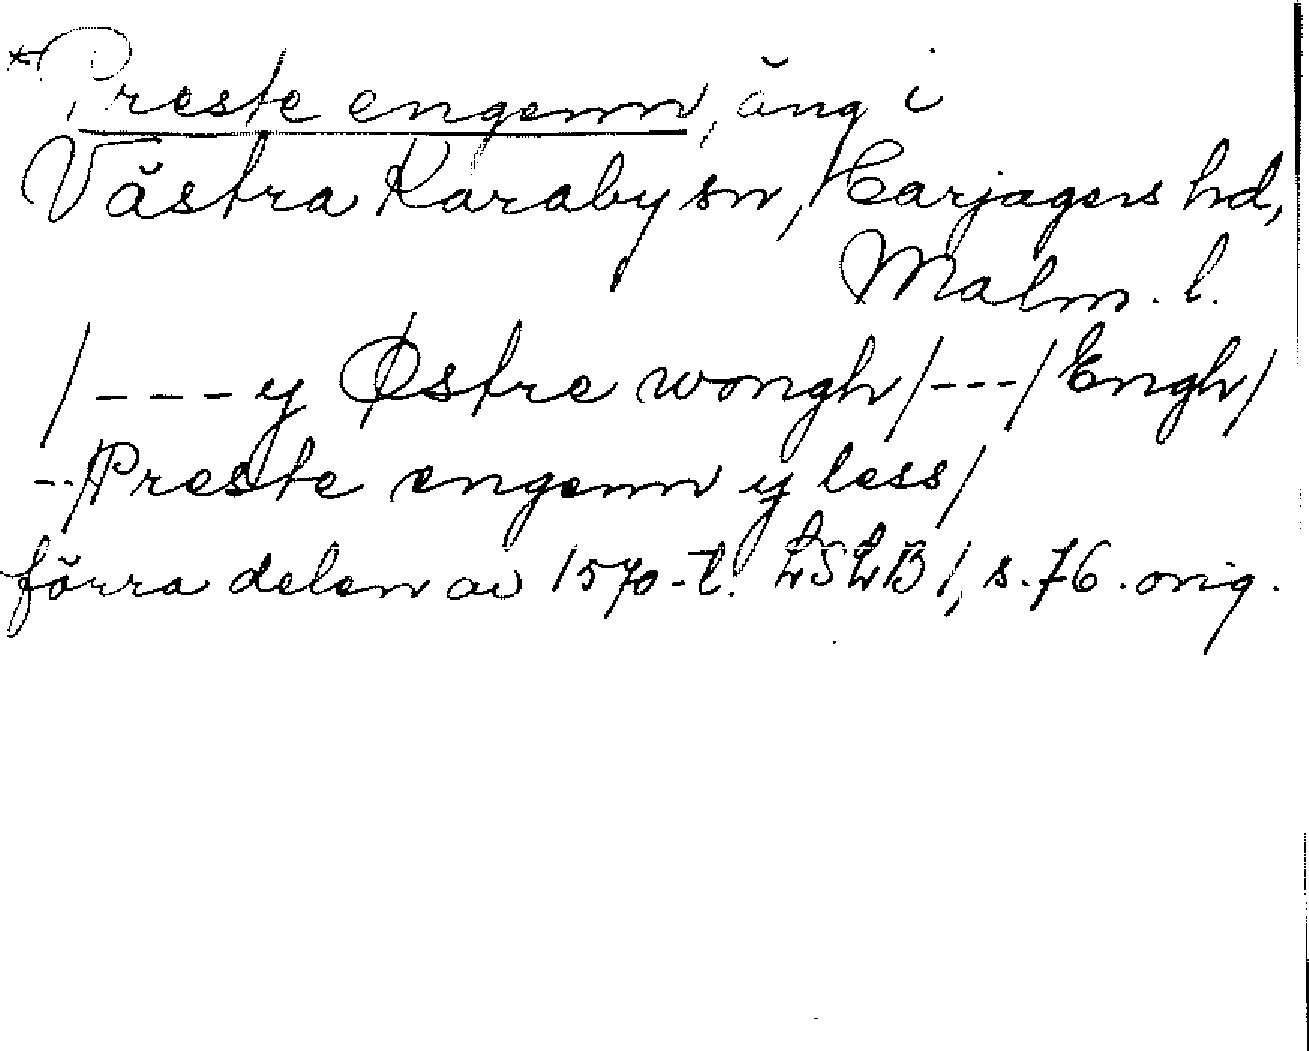 *Preste engenn, äng i
Västra Karaby sn, Harjagers hd,
Malm. l.
/----y Østre wongh/---/Engh/
--/Preste engenn y less/
förra delen av 1570-t. LSLB 1, s. 76. orig.